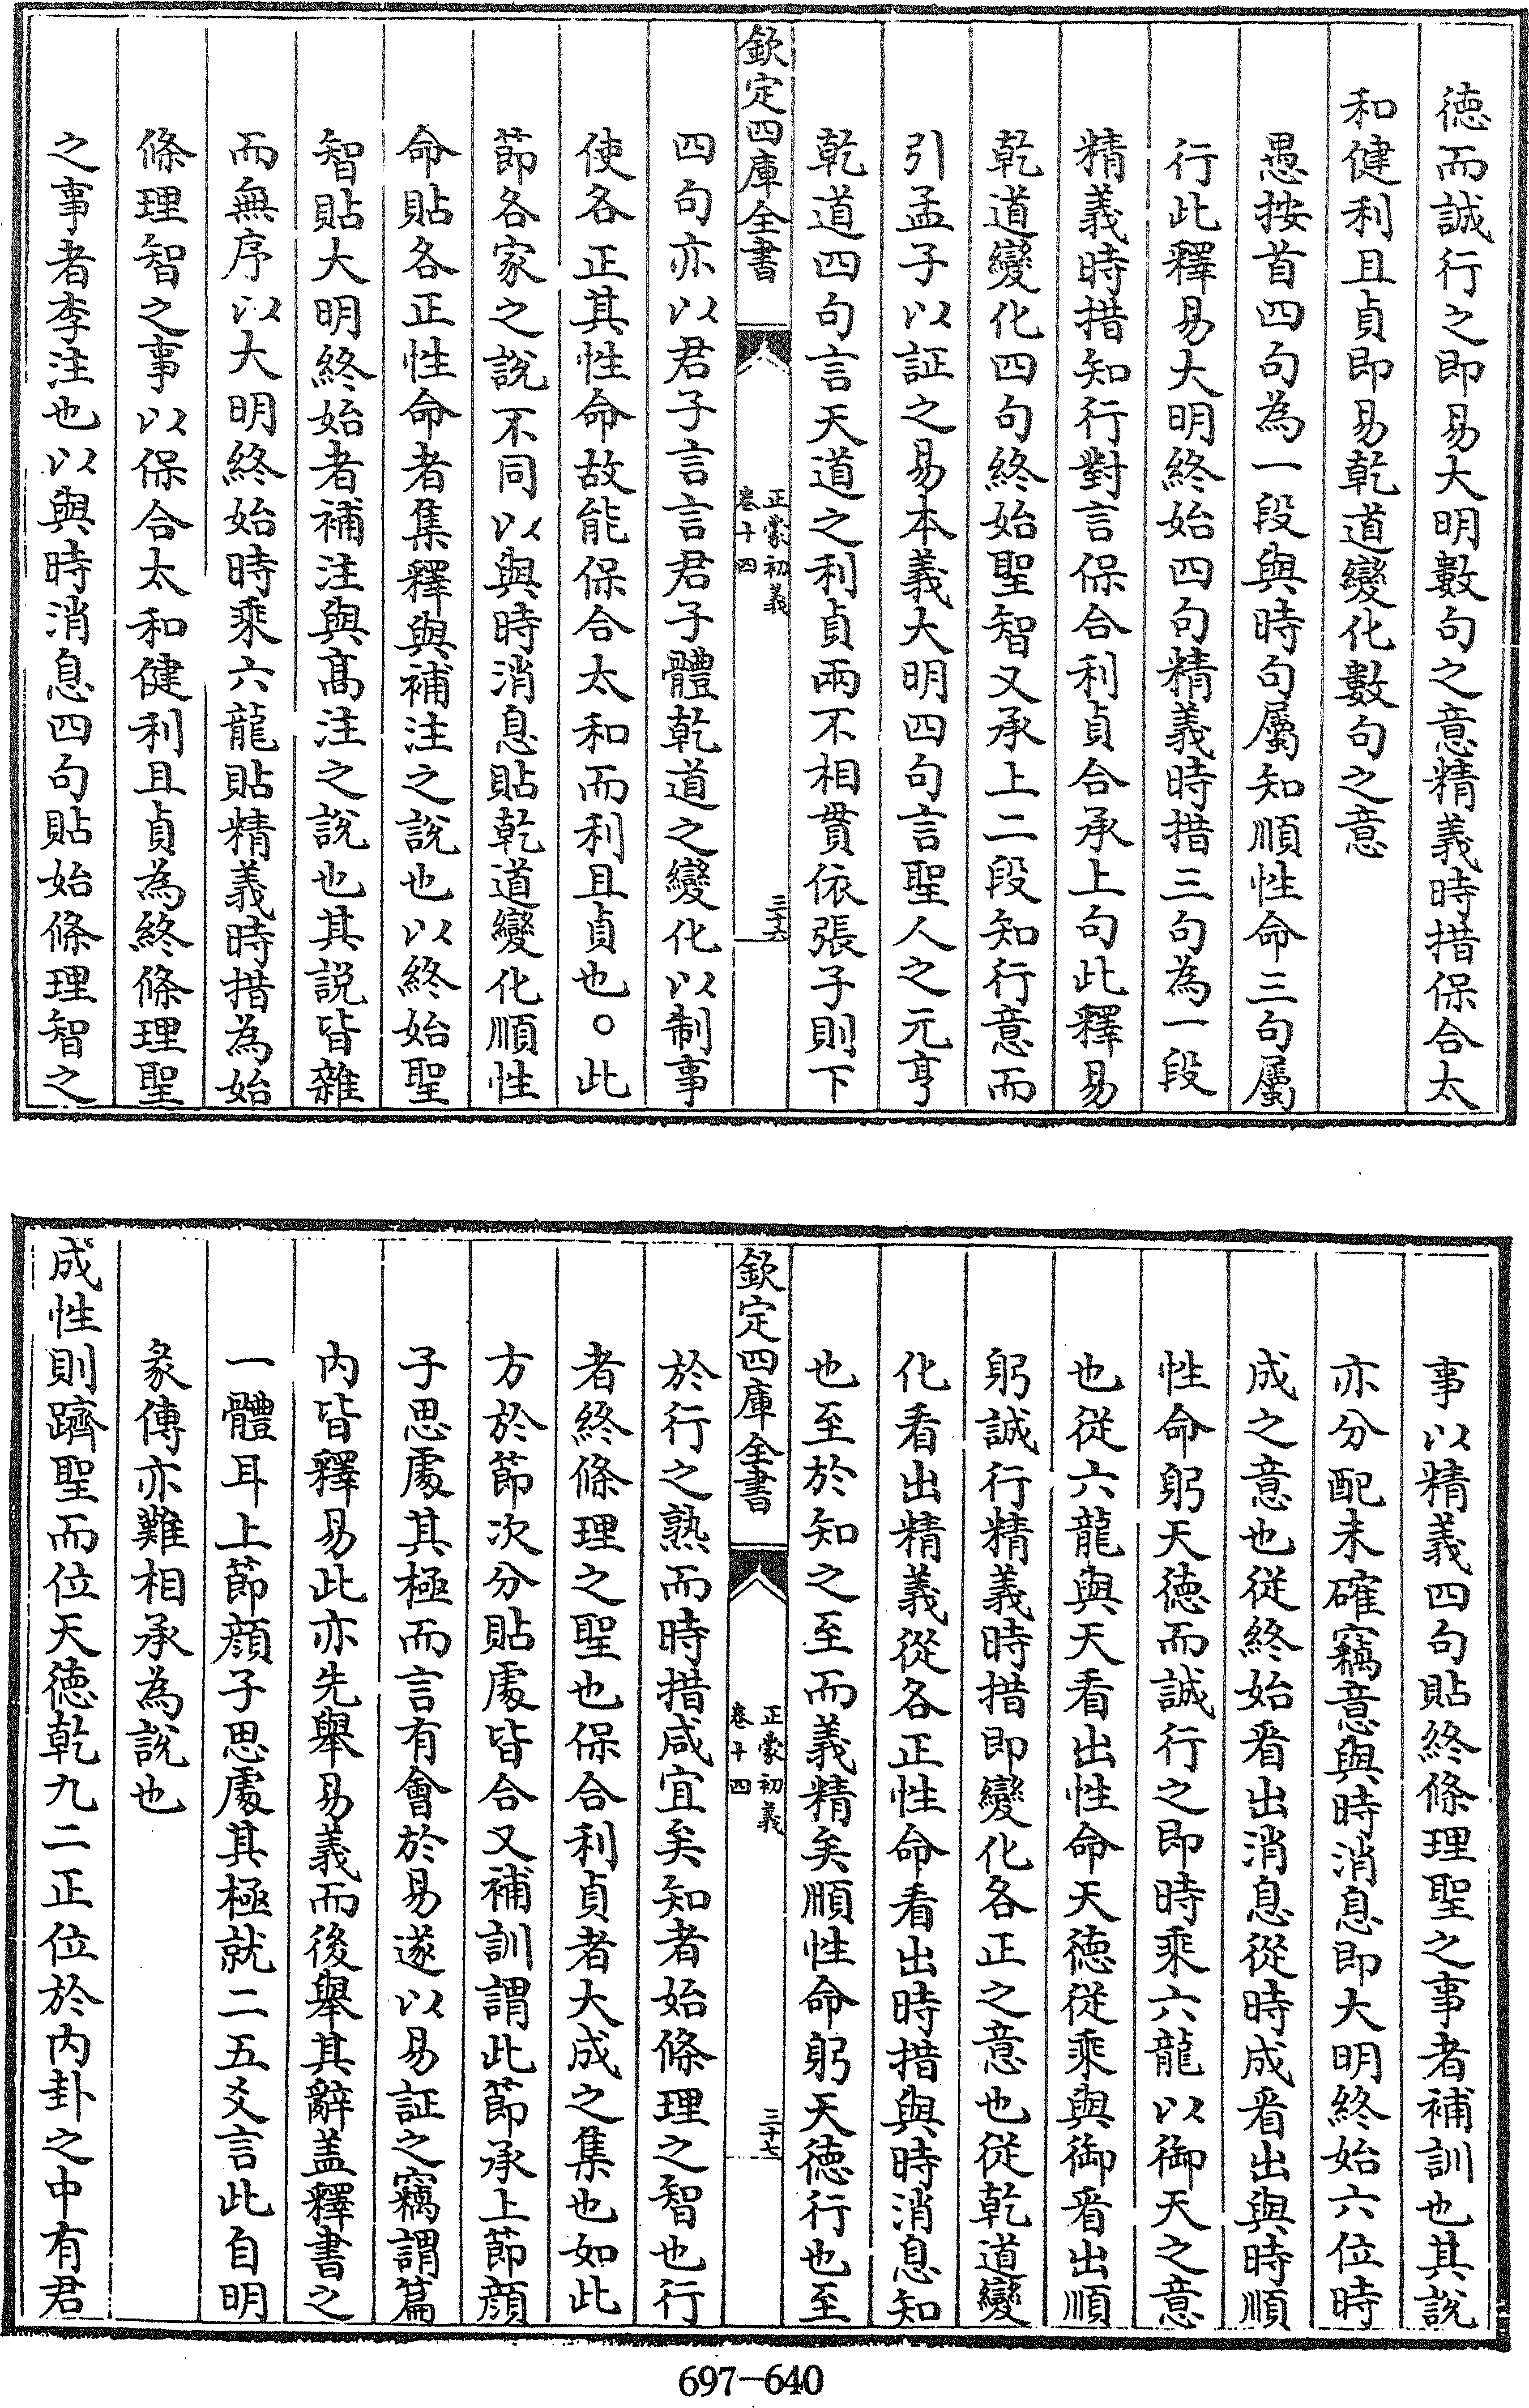 德而誠行之即易大明數句之意精義時措保合太
和健利且貞即易乾道變化數句之意
愚按首四句為一段與時句屬知順性命三句屬
行此釋易大明終始四句精義時措三句為一段
精義時措知行對言保合利貞合承上句此釋易
乾道變化四句終始聖智又承上二段知行意而
引孟子以証之易本義大明四句言聖人之元亨
乾道四句言天道之利貞兩不相貫依張子則下
欽定四庫全書
正蒙初義
卷十四
三十六
四句亦以君子言言君子體乾道之變化以制事
使各正其性命故能保合太和而利且貞也○此
節各家之說不同以與時消息貼乾道變化順性
命貼各正性命者集釋與補注之說也以終始聖
智貼大明終始者補注與高注之說也其説皆雜
而無序以大明終始時乘六龍貼精義時措為始
條理智之事以保合太和健利且貞為終條理聖
之事者李注也以與時消息四句貼始條理智之
事以精義四句貼終條理聖之事者補訓也其説
亦分配未確竊意與時消息即大明終始六位時
成之意也從終始看出消息從時成看出與時順
性命躬天德而誠行之即時乘六龍以御天之意
也從六龍與天看出性命天德從乘與御看出順
躬誠行精義時措即變化各正之意也從乾道變
化看出精義從各正性命看出時措與時消息知
也至於知之至而義精矣順性命躬天德行也至
欽定四庫全書
正蒙初義
卷十四
三十七
於行之熟而時措咸宜矣知者始條理之智也行
者終條理之聖也保合利貞者大成之集也如此
方於節次分貼處皆合又補訓謂此節承上節顔
子思處其極而言有會於易遂以易証之竊謂篇
内皆釋易此亦先舉易義而後舉其辭盖釋書之
一體耳上節顔子思處其極就二五爻言此自明
彖傳亦難相承為說也
成性則躋聖而位天德乾九二正位於内卦之中有君
697-640